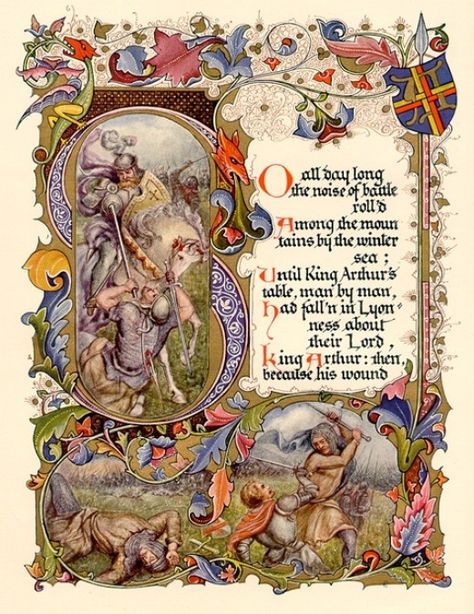 SO all day long
the noise of battle
roll'd
Among the moun
tains by the winter
sea ;
Until King Arthur's
table, man by man,
Had fall'n in Lyon-
ness about
their Lord,
King Arthur : then,
because his wound